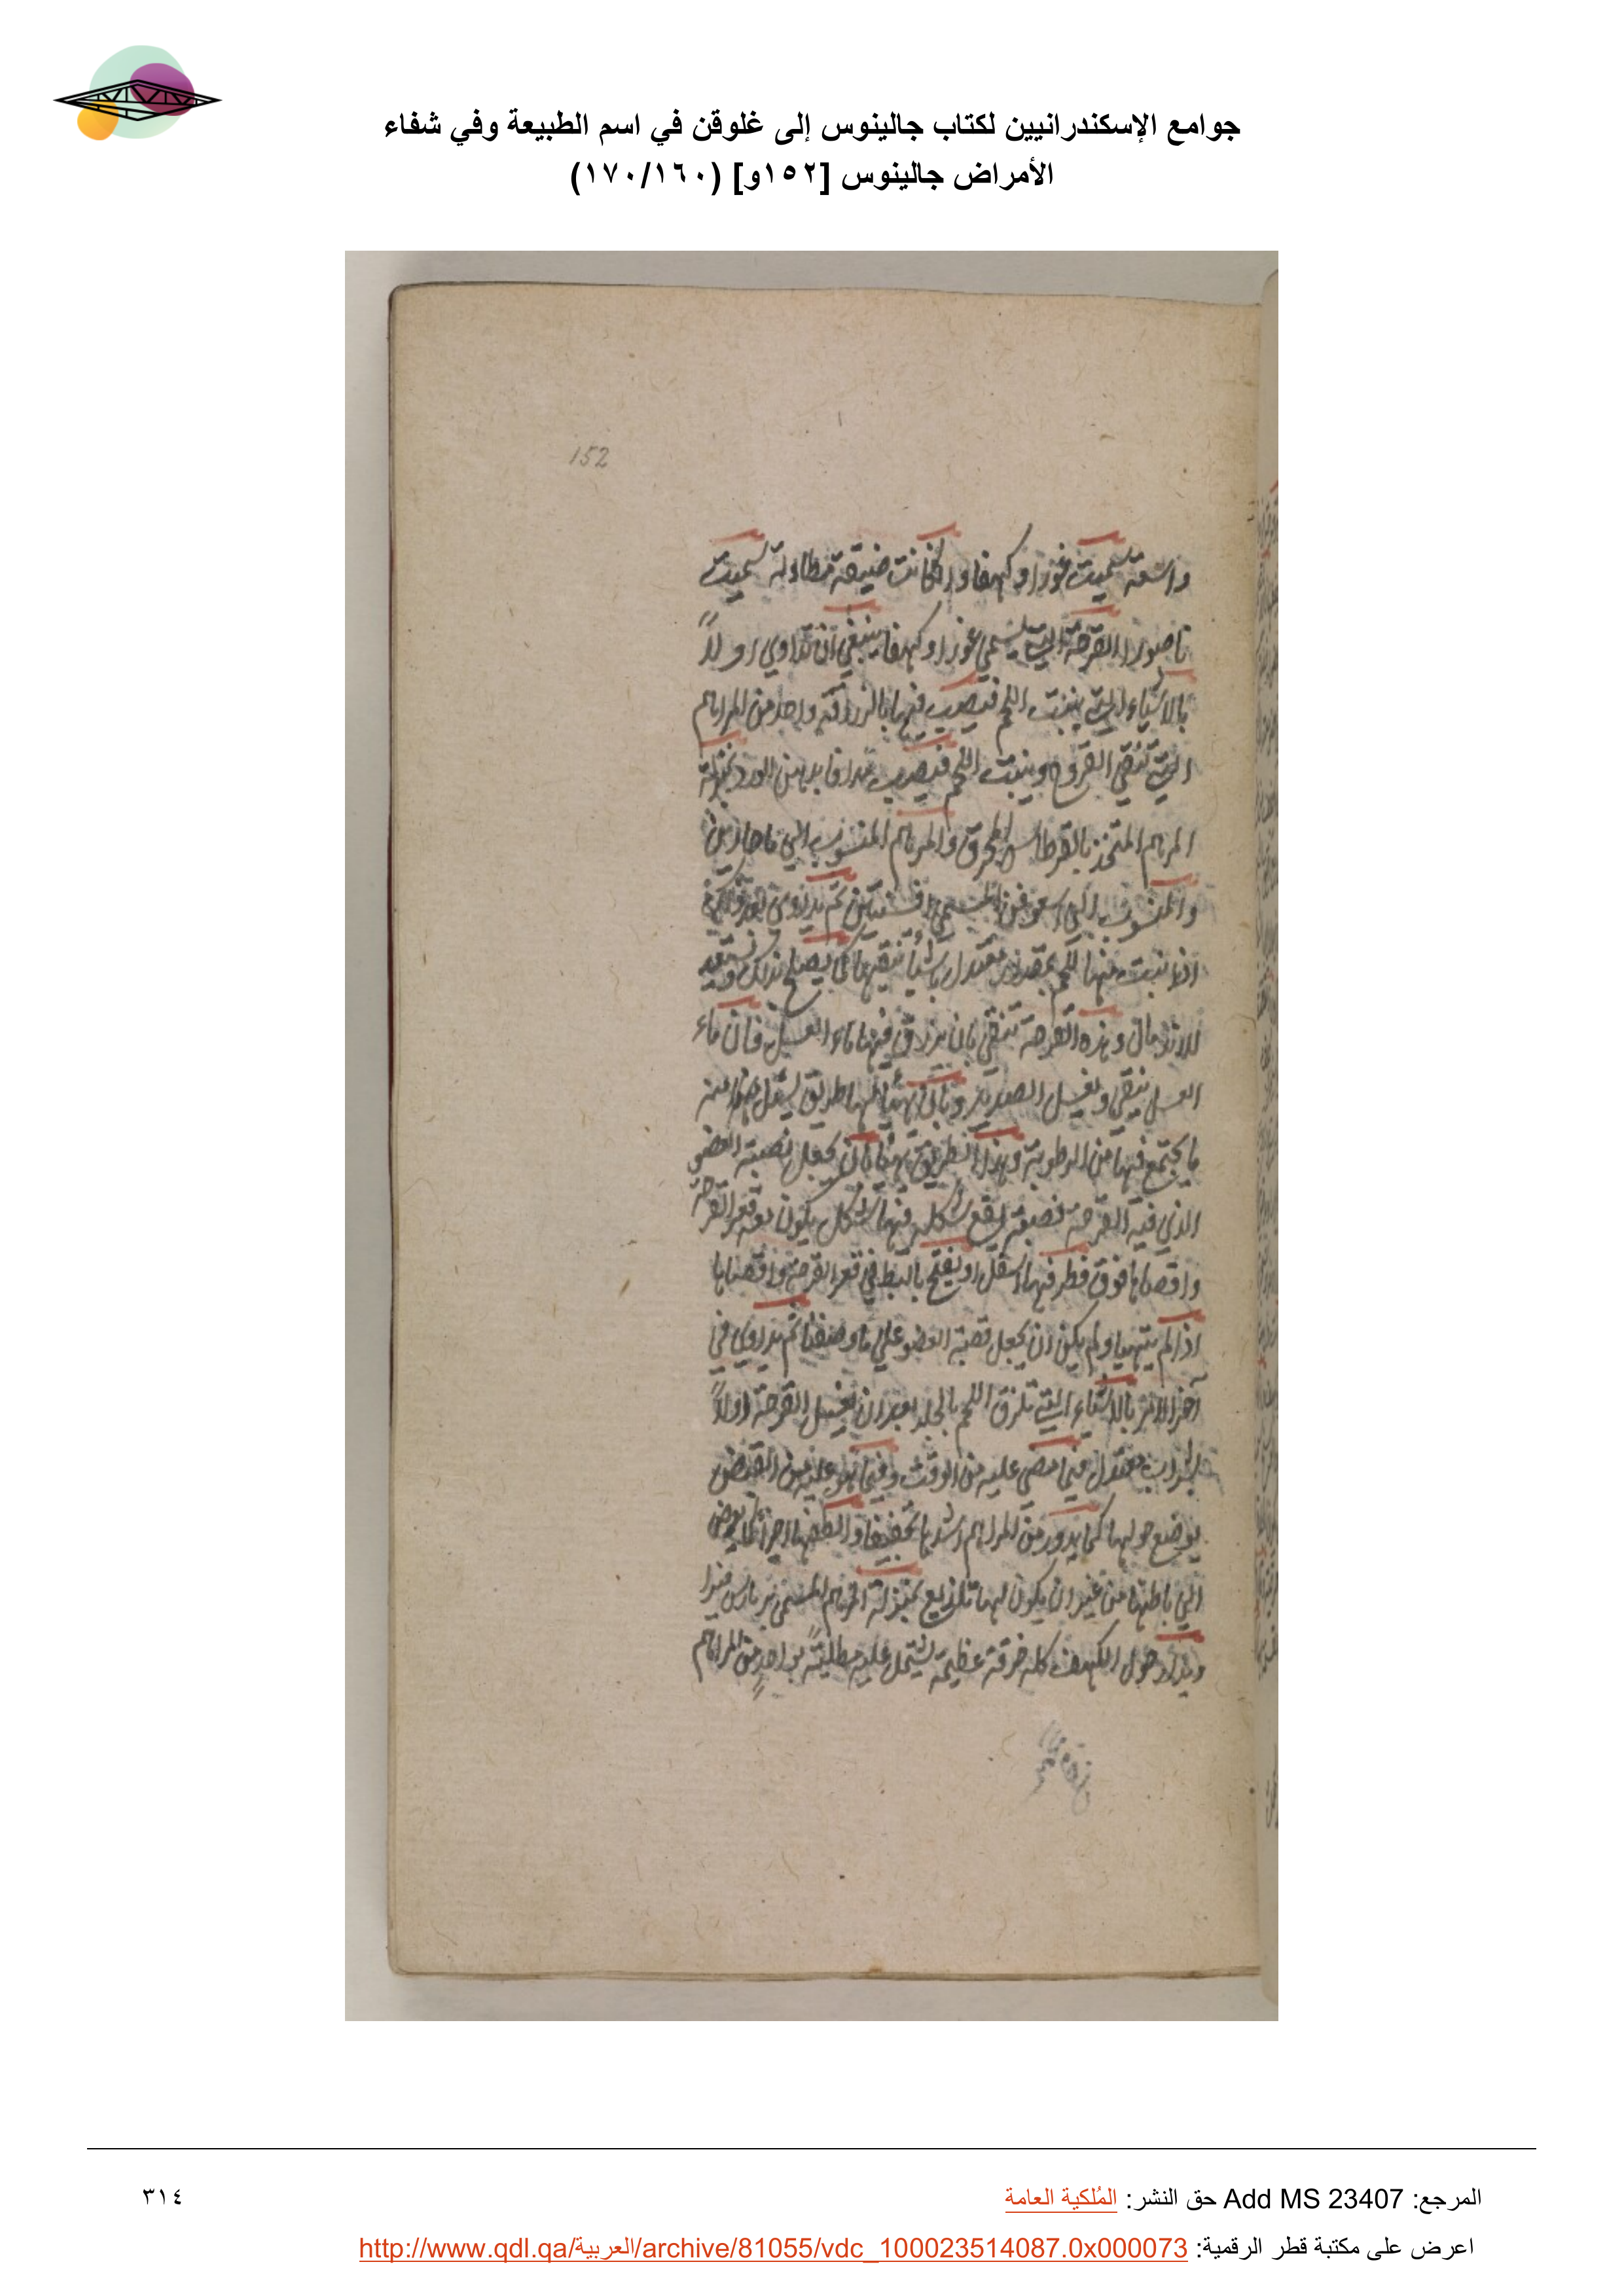 جوامع الإسكندرانيين لكتاب جالينوس إلى غلوقن في اسم الطبيعة وفي شفاء
الأمراض جالينوس [١٥٢و] (١٧٠/١٦٠)
152
واسعة سميت غورا وكهفا وان كانت ضيقة متطاولة سميت
ناصورا القرحة التي تسمي غورا وكهفا ينبغي ان تداوي اولاً
بالاشياء التي ينبت اللحم فيصب فيها بالزراقة واحد من المراهم
التي تنقي القروح وينبت اللحم فيصب مدافا بدهن الورد بمنزلة
المرهم المتخذ بالقرطاس المحرق والمرهم المنسوب الي
والمنسوب الي المسمي ثم يداوي
اذا نبت فيها اللحم بمقدار معتدل باشيأ تنقيها كي يصلح بذلك
وهذه القرحة تنقي بان يزرق فيها ماء العسل فان ماء
العسل ينقي ويغسل الصديد وبان يهيأ لها طريق يسيل منه
ما يجتمع فيها من الرطوبة وهذا الطريق يهيأ بان يجعل نصبة العضو
الذي فيه القرحة نصبة يقع شكله فيها شكل يكون معه قعر القرحة
واقصاها فوق فيها اسفل او يفتح بالبط في قعر القرحة واقصاها
اذا لم يتهيا ولم يكن ان يجعل نصبة العضو علي ما وصفنا ثم يداوي في
آخر الامر بالاشياء التي تلزق اللحم بالجلد بعد ان يغسل القرحة اولاً
بشراب معتدل فيما مضي عليه من الوقت وفيما هو عليه من القبض
يوضع حولها كما يدور من المراهم اشدها تجفيفا والطفها اجزأ
الي باطنها من غير ان يكون لها تلذيع بمنزلة المرهم المسمي
ويدار حول الكهف كله خرقة عظيمة يشتمل عليه مطلية بواحدٍ من المراهم
المرجع: Add MS 23407 حق النشر: المُلكية العامة
٣١٤
اعرض على مكتبة قطر الرقمية: http://www.qdl.qa/العربية/archive/81055/vdc_100023514087.0x000073